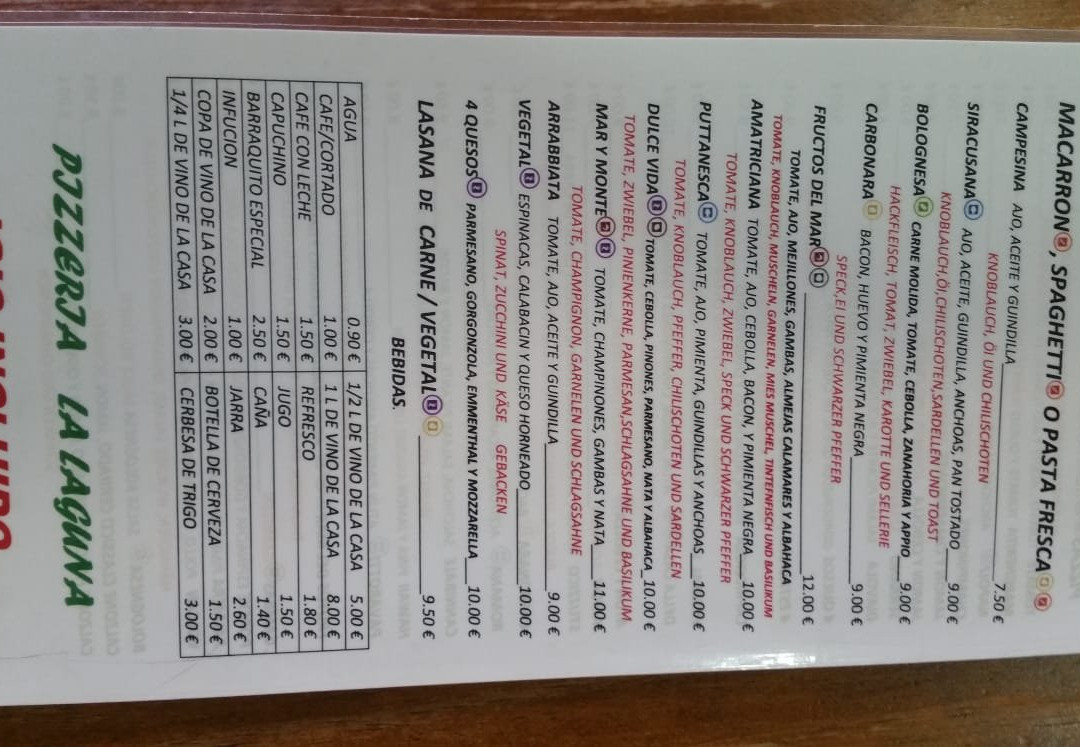 MACARRON, SPAGHETTI O PASTA FRESCA
CAMPESINA AJO, ACEITE Y GUINDILLA 7.50 €
KNOBLAUCH, ÖI UND CHILISCHOTEN
SIRACUSANA AJO, ACEITE, GUINDILLA, ANCHOAS, PAN TOSTADO 9.00 €
KNOBLAUCH,ÖI,CHILISCHOTEN,SARDELLEN UND TOAST
BOLOGNESA CARNE MOLIDA, TOMATE, CEBOLLA, ZANAHORIA Y APPIO 9.00 €
HACKFLEISCH, TOMAT, ZWIEBEL, KAROTTE UND SELLERIE
CARBONARA BACON, HUEVO Y PIMIENTA NEGRA 9.00 €
SPECK,EI UND SCHWARZER PFEFFER
FRUCTOS DEL MAR 12.00 €
TOMATE, AJO, MEJILLONES, GAMBAS, ALMEJAS CALAMARES Y ALBAHACA
TOMATE, KNOBLAUCH, MUSCHELN, GARNELEN, MIES MUSCHEL, TINTENFISCH UND BASILIKUM
AMATRICIANA TOMATE, AJO, CEBOLLA, BACON, Y PIMIENTA NEGRA 10.00 €
TOMATE, KNOBLAUCH, ZWIEBEL, SPECK UND SCHWARZER PFEFFER
PUTTANESCA TOMATE, AJO, PIMIENTA, GUINDILLAS Y ANCHOAS 10.00 €
TOMATE, KNOBLAUCH, PFEFFER, CHILISCHOTEN UND SARDELLEN
DULCE VIDA TOMATE, CEBOLLA, PIÑONES, PARMESANO, NATA Y ALBAHACA 10.00 €
TOMATE, ZWIEBEL, PINIENKERNE, PARMESAN,SCHLAGSAHNE UND BASILIKUM
MAR Y MONTE TOMATE, CHAMPINONES, GAMBAS Y NATA 11.00 €
TOMATE, CHAMPIGNON, GARNELEN UND SCHLAGSAHNE
ARRABBIATA TOMATE, AJO, ACEITE Y GUINDILLA 9.00 €
VEGETAL ESPINACAS, CALABACIN Y QUESO HORNEADO 10.00 €
SPINAT, ZUCCHINI UND KÄSE GEBACKEN
4 QUESOS PARMESANO, GORGONZOLA, EMMENTHAL Y MOZZARELLA 10.00 €
LASANA DE CARNE / VEGETAL 9.50 €
BEBIDAS.
AGUA 0.90 € 1/2 L DE VINO DE LA CASA 5.00 €
CAFE/CORTADO 1.00 € 1 L DE VINO DE LA CASA 8.00 €
CAFE CON LECHE 1.50 € REFRESCO 1.80 €
CAPUCHINO 1.50 € JUGO 1.50 €
BARRAQUITO ESPECIAL 2.50 € CAÑA 1.40 €
INFUCION 1.00 € JARRA 2.60 €
COPA DE VINO DE LA CASA 2.00 € BOTELLA DE CERVEZA 1.50 €
1/4 L DE VINO DE LA CASA 3.00 € CERBESA DE TRIGO 3.00 €
PIZZERIA LA LAGUNA